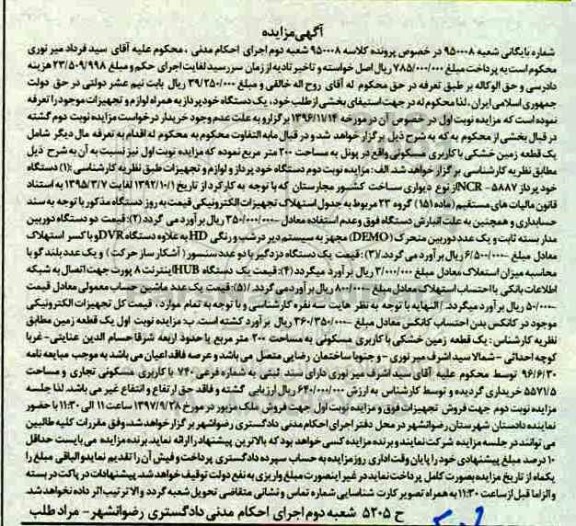 آگهی مزایده
شماره بایگانی شعبه ۹۵۰۰۰۸ در خصوص پرونده کلاسه ۹۵۰۰۰۸ شعبه دوم اجرای احکام مدنی ، محکوم علیه آقای سید فرداد میر نوری
محکوم است به پرداخت مبلغ ۷۸۵/۰۰۰/۰۰۰ ریال اصل خواسته و تاخیر تادیه از زمان سررسید لغایت اجرای حکم و مبلغ ۲۳/۵۰۹/۹۹۸ هزینه
دادرسی و حق الوکاله بر طبق تعرفه در حق محکوم له آقای روح اله خالقی و مبلغ ۳۹/۲۵۰/۰۰۰ ریال بابت نیم عشر دولتی در حق دولت
جمهوری اسلامی ایران . لذا محکوم له در جهت استیفای بخشی از طلب خود ، یک دستگاه خودپرداز به همراه لوازم و تجهیزات موجود را تعرفه
نموده است که مزایده نوبت اول در خصوص آن در مورخه ۱۳۹۶/۱۱/۱۴ برگزار و به علت عدم وجود خریدار درخواست مزایده نوبت دوم گشته
در قبال بخشی از محکوم به که به شرح ذیل برگزار خواهد شد و در قبال مابه التفاوت محکوم به محکوم له اقدام به تعرفه مال دیگر شامل
یک قطعه زمین خشکی با کاربری مسکونی واقع در پونل به مساحت ۲۰۰ متر مربع نموده که مزایده نوبت اول نیز نسبت به آن به شرح ذیل
مطابق نظریه کارشناسی برگزار خواهد شد. الف: مزایده نوبت دوم دستگاه خود پرداز و لوازم و تجهیزات طبق نظریه کارشناسی :(۱) دستگاه
خود پرداز ۵۸۸۷ - NCR از نوع دیواری ساخت کشور مجارستان که با توجه به کارکرد از تاریخ ۱۳۹۲/۱۰/۱ لغایت ۱۳۹۵/۳/۷ به استناد
قانون مالیات های مستقیم (ماده ۱۵۱) گروه ۲۳ مربوط به جدول استهلاک تجهیزات الکترونیکی قیمت به روز دستگاه مذکور با توجه به سند
حسابداری و همچنین به علت انبارش دستگاه فوق و عدم استفاده معادل ۳۵۰/۰۰۰/۰۰۰ ریال برآورد می گردد (۲): قیمت دو دستگاه دوربین
مدار بسته ثابت و یک عدد دوربین متحرک (DEMO) مجهز به سیستم دید در شب و رنگی HD به علاوه دستگاه DVR و با کسر استهلاک
معادل مبلغ ۶/۵۰۰/۰۰۰ ریال برآورد می گردد.(۳): قیمت یک دستگاه دزدگیر با دو عدد سنسور ( آشکار ساز حرکت ) و یک عدد بلندگو با
محاسبه میزان استهلاک معادل مبلغ ۳/۰۰۰/۰۰۰ ریال برآورد میگردد (۴): قیمت یک دستگاه HUB اینترنت ۸ پورت جهت اتصال به شبکه
اطلاعات بانکی با احتساب استهلاک معادل مبلغ ۸۰۰/۰۰۰ ریال برآورد می گردد. (۵): قیمت یک عدد ماشین حساب معمولی معادل قیمت
۵۰/۰۰۰ ریال برآورد میگردد. النهایه با توجه به نظر هایت سه نفره کارشناسی و با توجه به تمام موارد ، قیمت کل تجهیزات الکترونیکی
موجود در کانکس بدن احتساب کانکس معادل مبلغ ۳۶۰/۳۵۰/۰۰۰ ریال برآورد گشته است. ب: مزایده نوبت اول یک قطعه زمین مطابق
نظریه کارشناس : یک قطعه زمین خشکی با کاربری مسکونی به مساحت ۲۰۰ متر مربع با حدود اربعه شرقا حسام الدین عنایتی- غربا
کوچه احداثی - شمالا سید اشرف میر نوری - و جنوبا ساختمان رضایی متصل می باشد و عرصه فاقد اعیان می باشد به موجب مبایعه نامه
۹۶/۶/۳۰ توسط محکوم علیه آقای سید اشرف میر نوری دارای سند ثبتی به شماره فرعی ۷۴۰ با کاربری مسکونی تجاری و مساحت
۵۵۷۱/۵ خریداری گردیده و توسط کارشناس به ارزش ۶۴۰/۰۰۰/۰۰۰ ریال ارزیابی گشته و فاقد حق ارتفاع و انتفاع غیر می باشد. لذا جلسه
مزایده نوبت دوم جهت فروش تجهیزات فوق و مزایده نوبت اول جهت فروش ملک مزبور در مورخ ۱۳۹۷/۹/۲۸ ساعت ۱۱ الی ۱۱:۳۰ با حضور
نماینده دادستان شهرستان رضوانشهر در محل دفتر اجرای احکام مدنی دادگستری رضوانشهر برگزار خواهد شد، وفق مقررات کلیه طالبین
می توانند در جلسه مزایده شرکت نمایند و برنده مزایده کسی خواهد بود که بالاترین پیشنهاد را ارائه نماید. برنده مزایده می بایست حداقل
۱۰ درصد مبلغ پیشنهادی خود را تا پایان وقت اداری روز مزایده به حساب سپرده دادگستری پرداخت و فیش آن را تقدیم نماید و الباقی مبلغ را
یکماه از تاریخ مزایده بصورت کامل پرداخت نماید در غیر اینصورت مبلغ واریزی به نفع دولت توقیف خواهد شد. پیشنهادات در پاکت در بسته
و الزاما قبل از ساعت ۱۱:۳۰ به همراه تصویر کارت شناسایی شماره تماس و نشانی متقاضی تحویل شعبه گردد والا ترتیب اثر داده نخواهد شد.
ح ۵۲۰۵ شعبه دوم اجرای احکام مدنی دادگستری رضوانشهر- مراد طلب